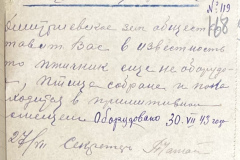 № 119
168
Дмитриевское зем общест
ставит Вас в известность
что птичник еще не оборудо
птица собрана и нахо
лодится в примитивном
помещен. Оборудовано 30.VII 43 год
27/VII Секретарь